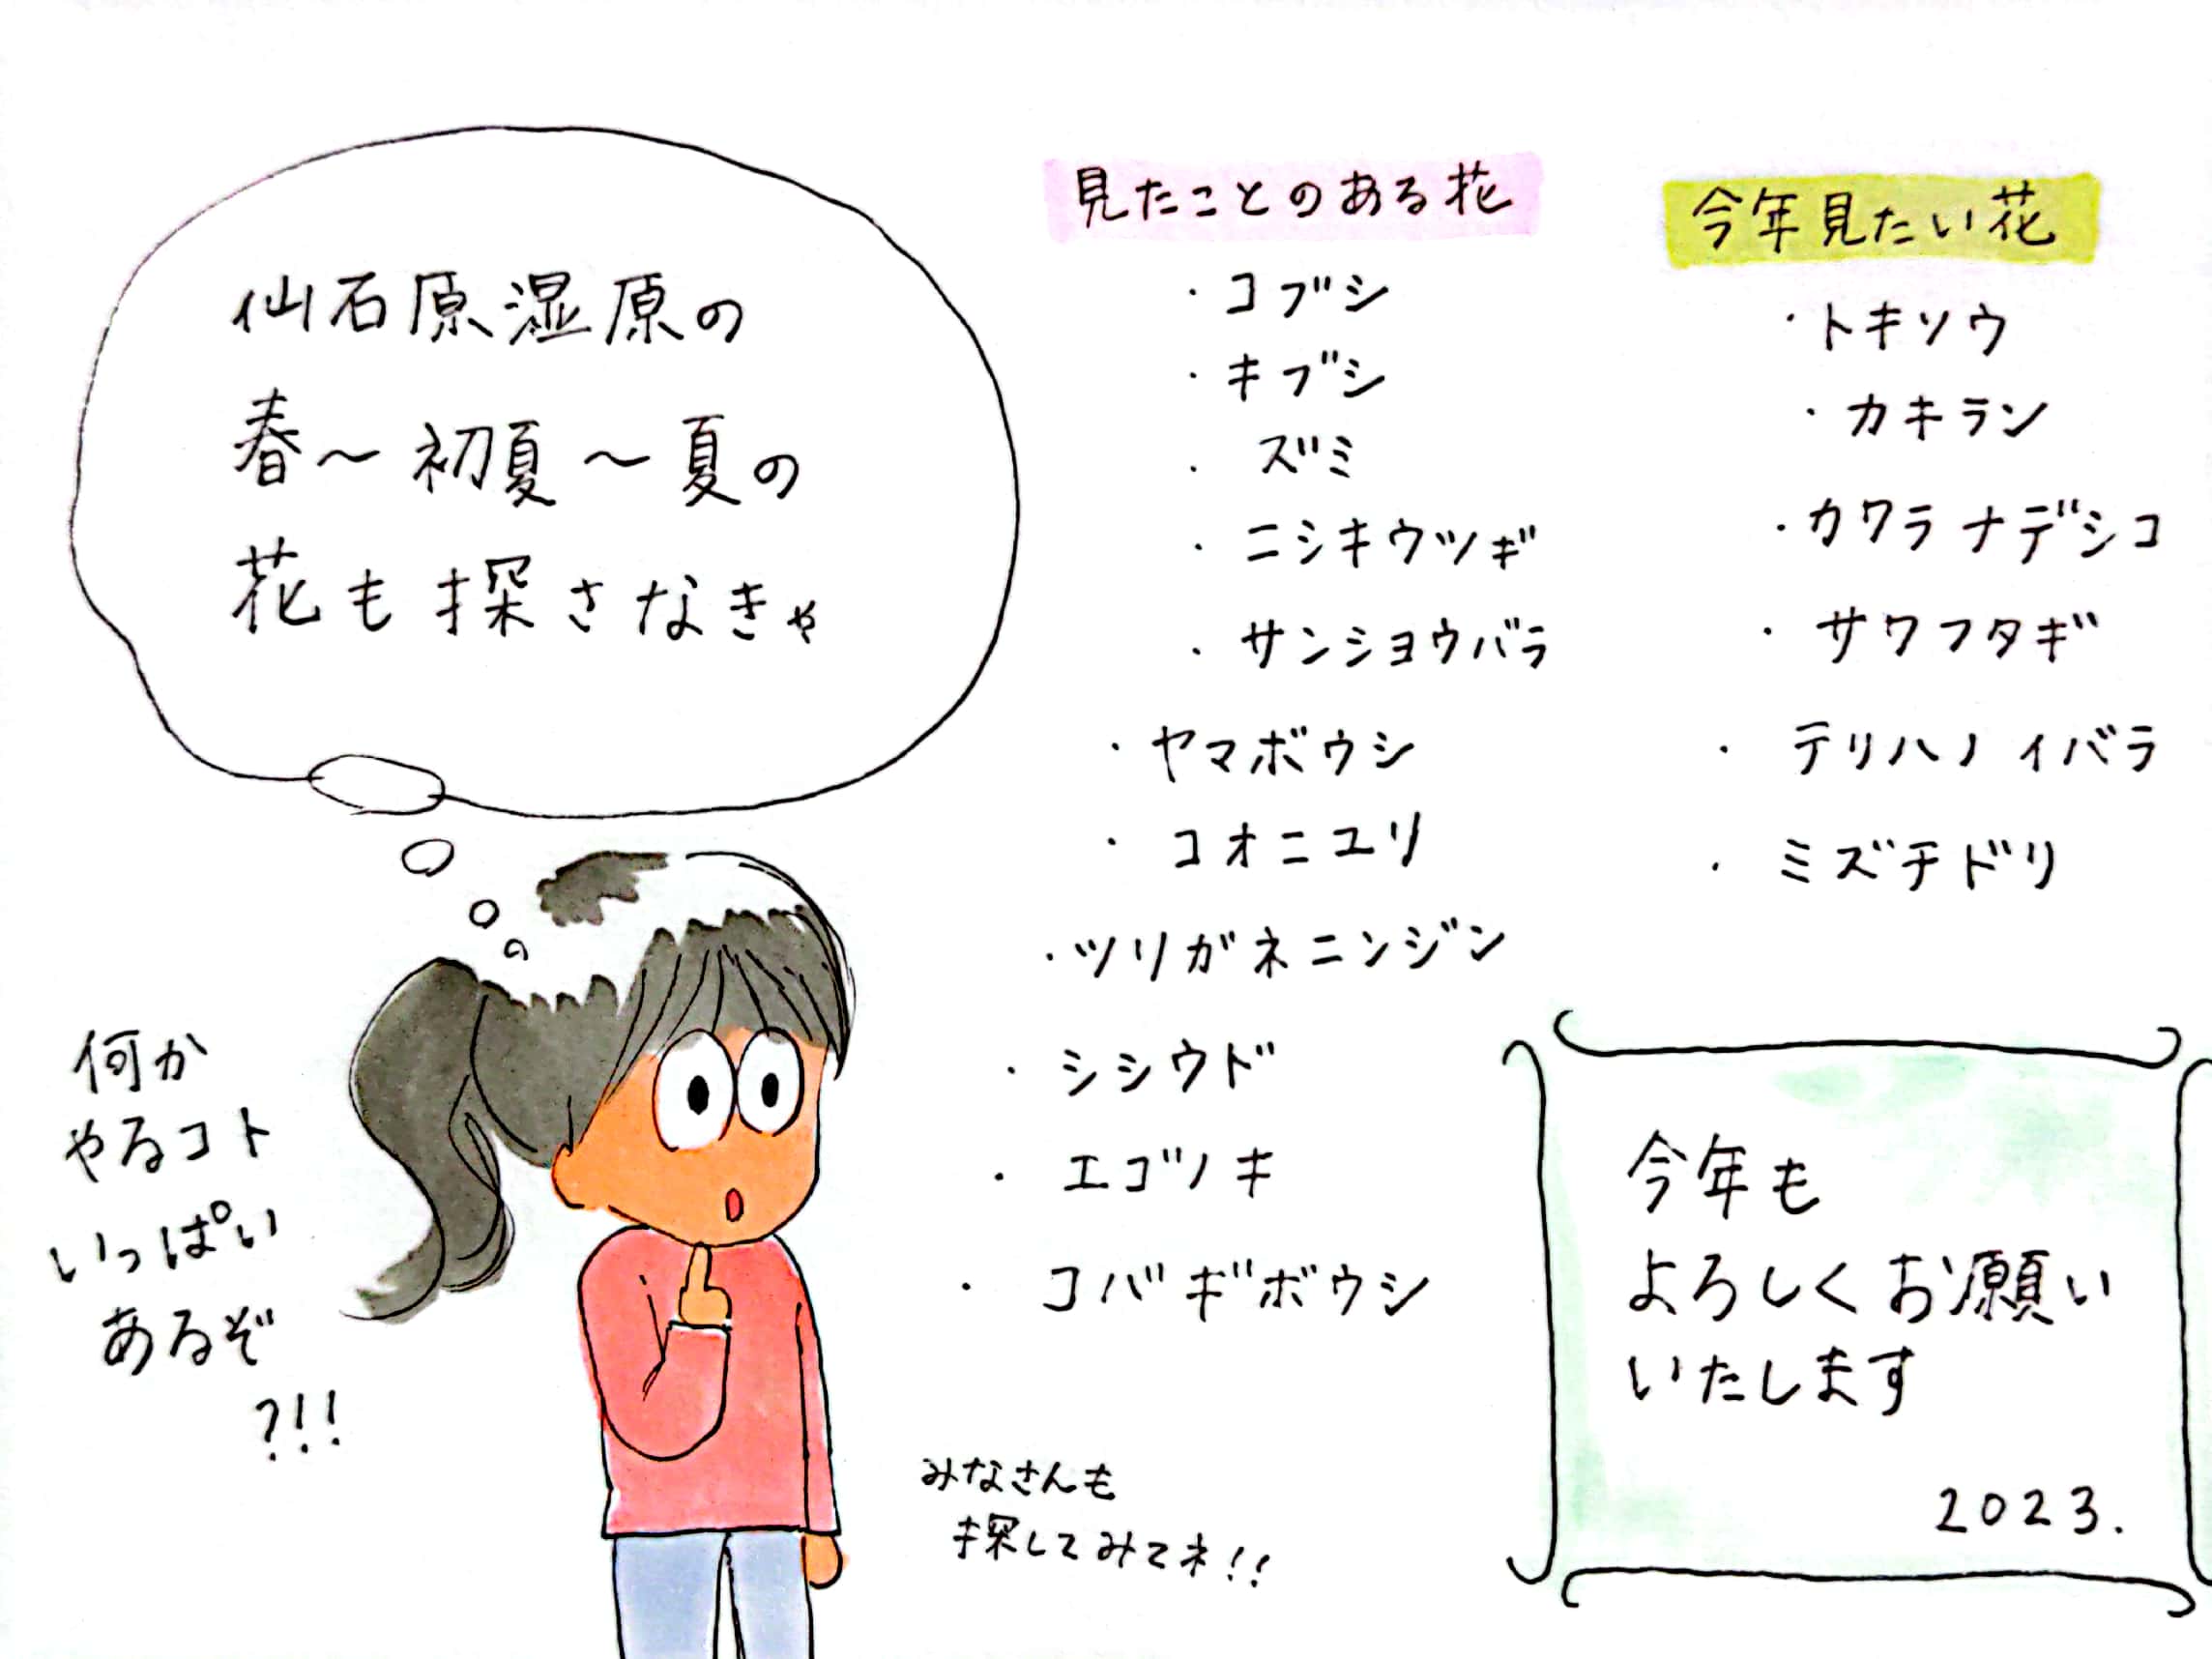 仙石原湿原の
春～初夏～夏の
花も探さなきゃ
何か
やるコト
いっぱい
あるぞ
?!!
見たことのある花
・コブシ
・キブシ
・ズミ
・ニシキウツギ
・サンショウバラ
・ヤマボウシ
・コオニユリ
・ツリガネニンジン
・シシウド
・エゴノキ
・コバギボウシ
今年見たい花
・トキソウ
・カキラン
・カワラナデシコ
・サワフタギ
・テリハノイバラ
・ミズチドリ
みなさんも
探してみてネ!!
今年も
よろしくお願い
いたします
2023.